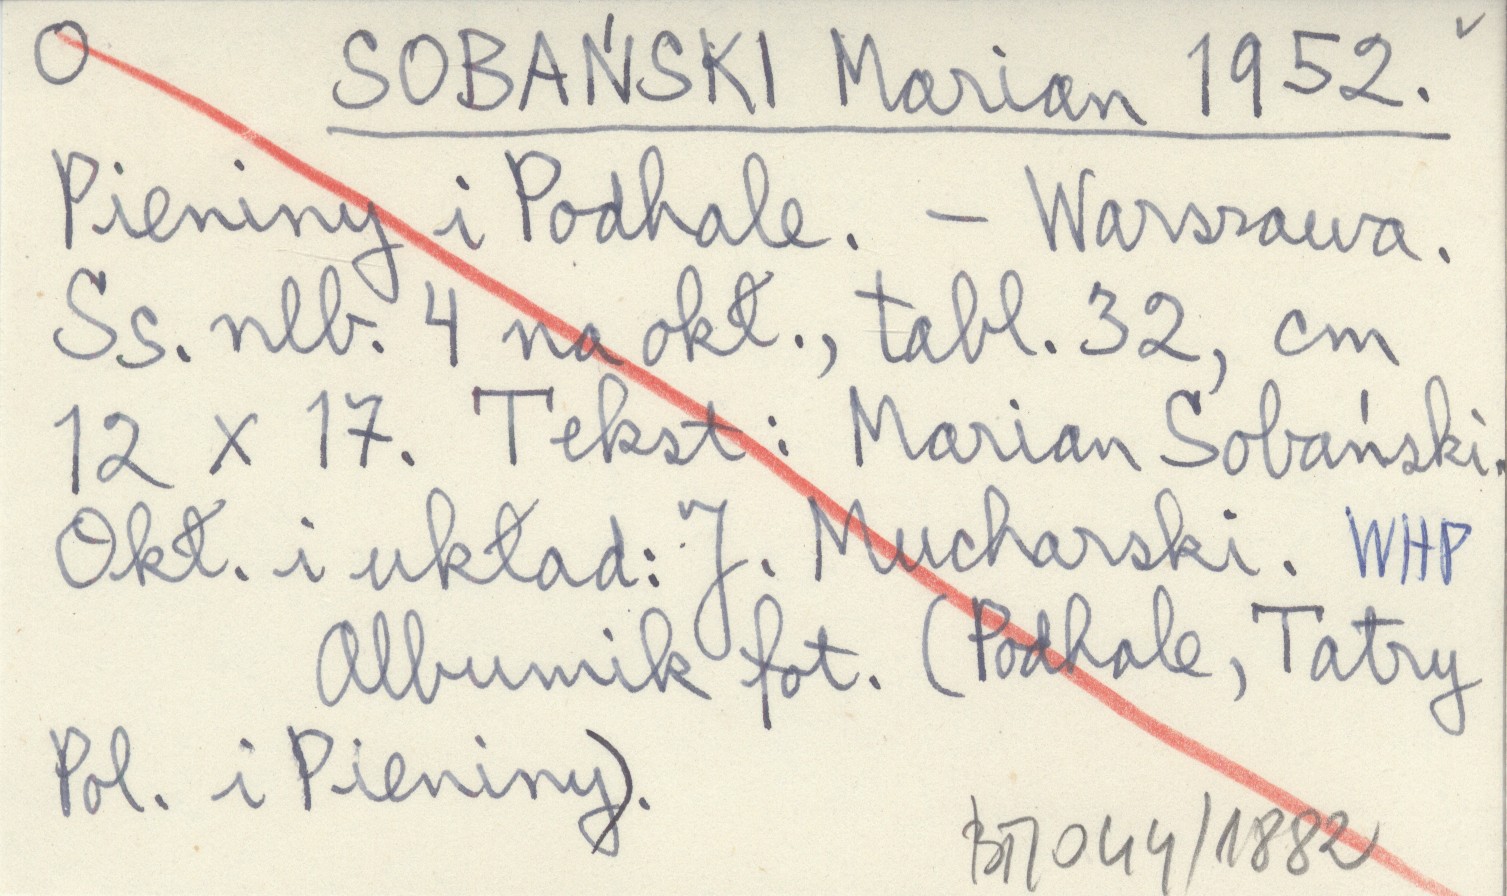 O SOBAŃSKI Marian 1952.
Pieniny i Podhale. – Warszawa.
Ss. nlb. 4 na okł., tabl. 32, cm
12 x 17. Tekst: Marian Sobański.
Okł. i układ: J. Mucharski. WHP
Albumik fot. (Podhale, Tatry
Pol. i Pieniny).
044/1882